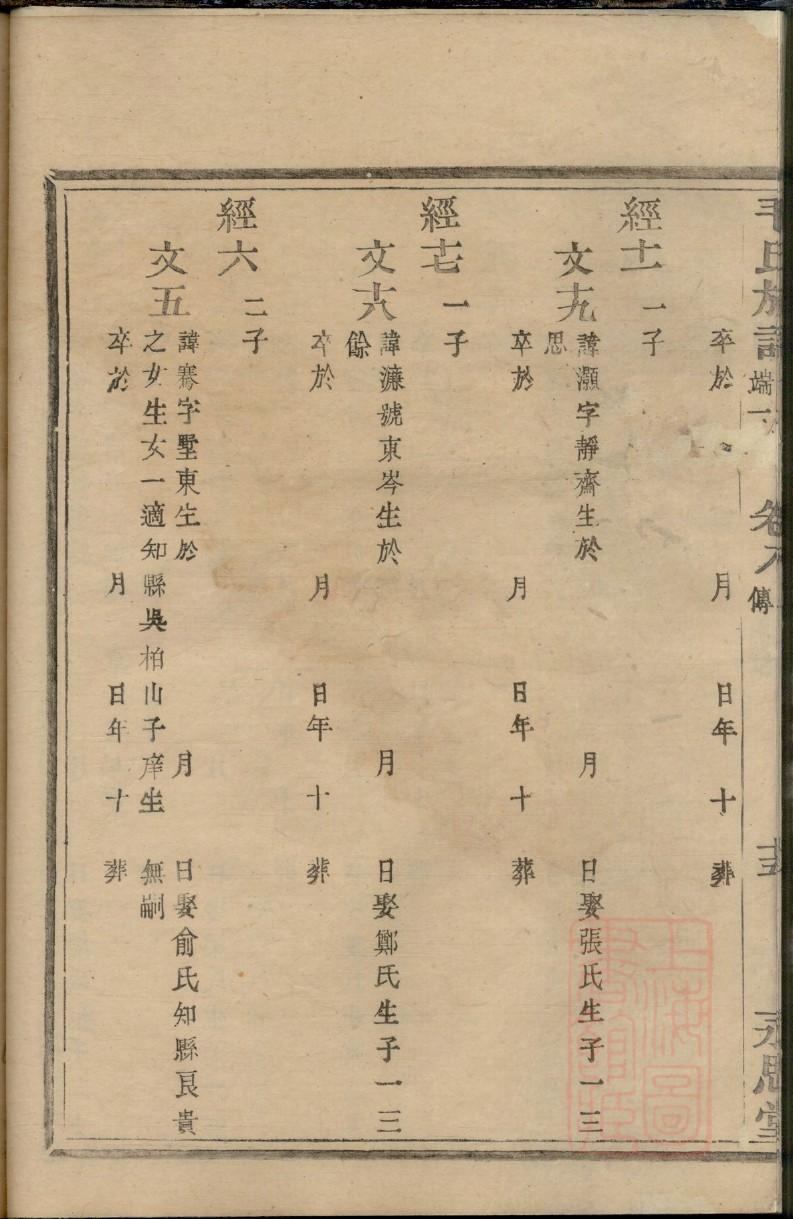 毛氏族譜 端一 卷八 傳 十五 永思堂
卒於 月 日年 十 葬
經十一 一子
文十九 諱灝字靜齋生於 月 日娶張氏生子一三
思
卒於 月 日年 十 葬
經十七 一子
文十八 諱濂號東岑生於 月 日娶鄭氏生子一三
餘
卒於 月 日年 十 葬
經六 二子
文五 諱騫字墅東生於 月 日娶俞氏知縣良貴
之女生女一適知縣吳柏山子庠生 無嗣
卒於 月 日年十 葬
上海圖書館藏